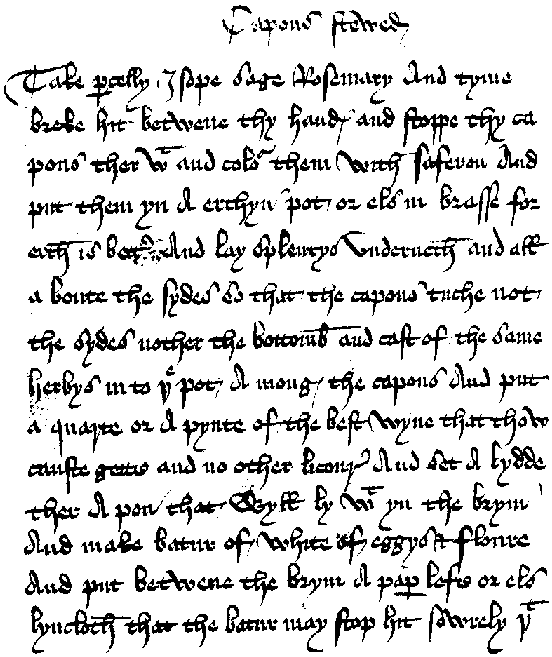 Capons stewed
Take percelly Isope sage Rosemary And tyme
breke hit betwene thy handes and stoppe thy ca
pons ther wt and colour them with saferon And
put them yn A erthyn pot or els in brasse for
erth is better And lay splentys underneth and all
a boute the sydes so that the capons tuche not
the sydes nother the bottomb and cast of the same
herbys in to ye pot A mong the capons And put
a quarte or A pynte of the best wyne that thow
canste gette and no other licour And set A lydde
ther A pon that Wyll ly wt yn the brym
And make batur of white of eggys & floure
And put betwene the brym A paper lefe or els
lyncloth that the batur may stop hit sewrely yt